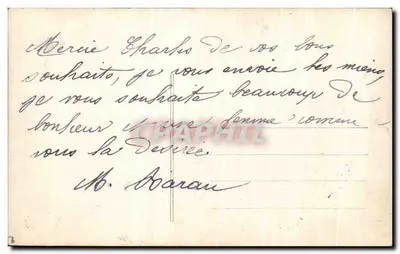 Merci Charles de vos bons
souhaits, je vous envoie les miens,
je vous souhaite beaucoup de
bonheur et une femme comme
vous la desirée
M.
CARTE